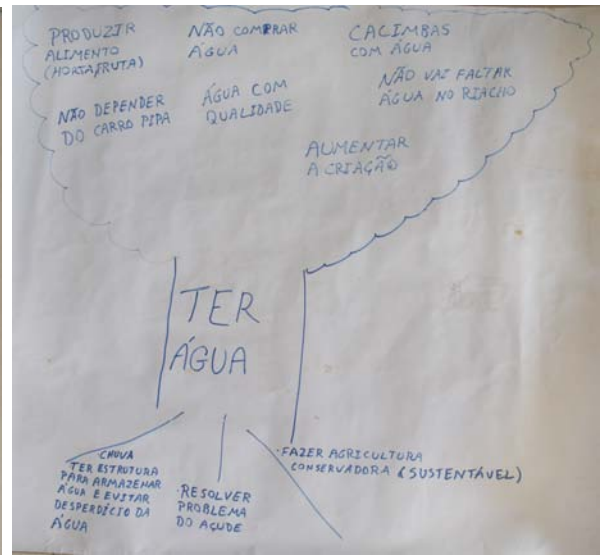 PRODUZIR
ALIMENTO
(HORTA/FRUTA)
NÃO COMPRAR
ÁGUA
CACIMBAS
COM ÁGUA
NÃO DEPENDER
DO CARRO PIPA
ÁGUA COM
QUALIDADE
NÃO VAI FALTAR
ÁGUA NO RIACHO
AUMENTAR
A CRIAÇÃO
TER
ÁGUA
CHUVA
TER ESTRUTURA
PARA ARMAZENAR
ÁGUA E EVITAR
DESPERDÍCIO DA
ÁGUA
·RESOLVER
PROBLEMA
DO AÇUDE
·FAZER AGRICULTURA
CONSERVADORA (SUSTENTÁVEL)